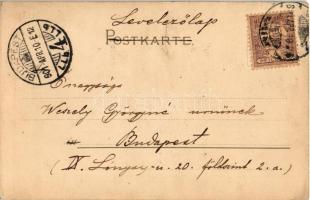 Levelezőlap
POSTKARTE.
Őnagysága
Weszely Györgyné nőnönek
Budapest
IX. Lónyay-u. 20. földszint 2. a.)